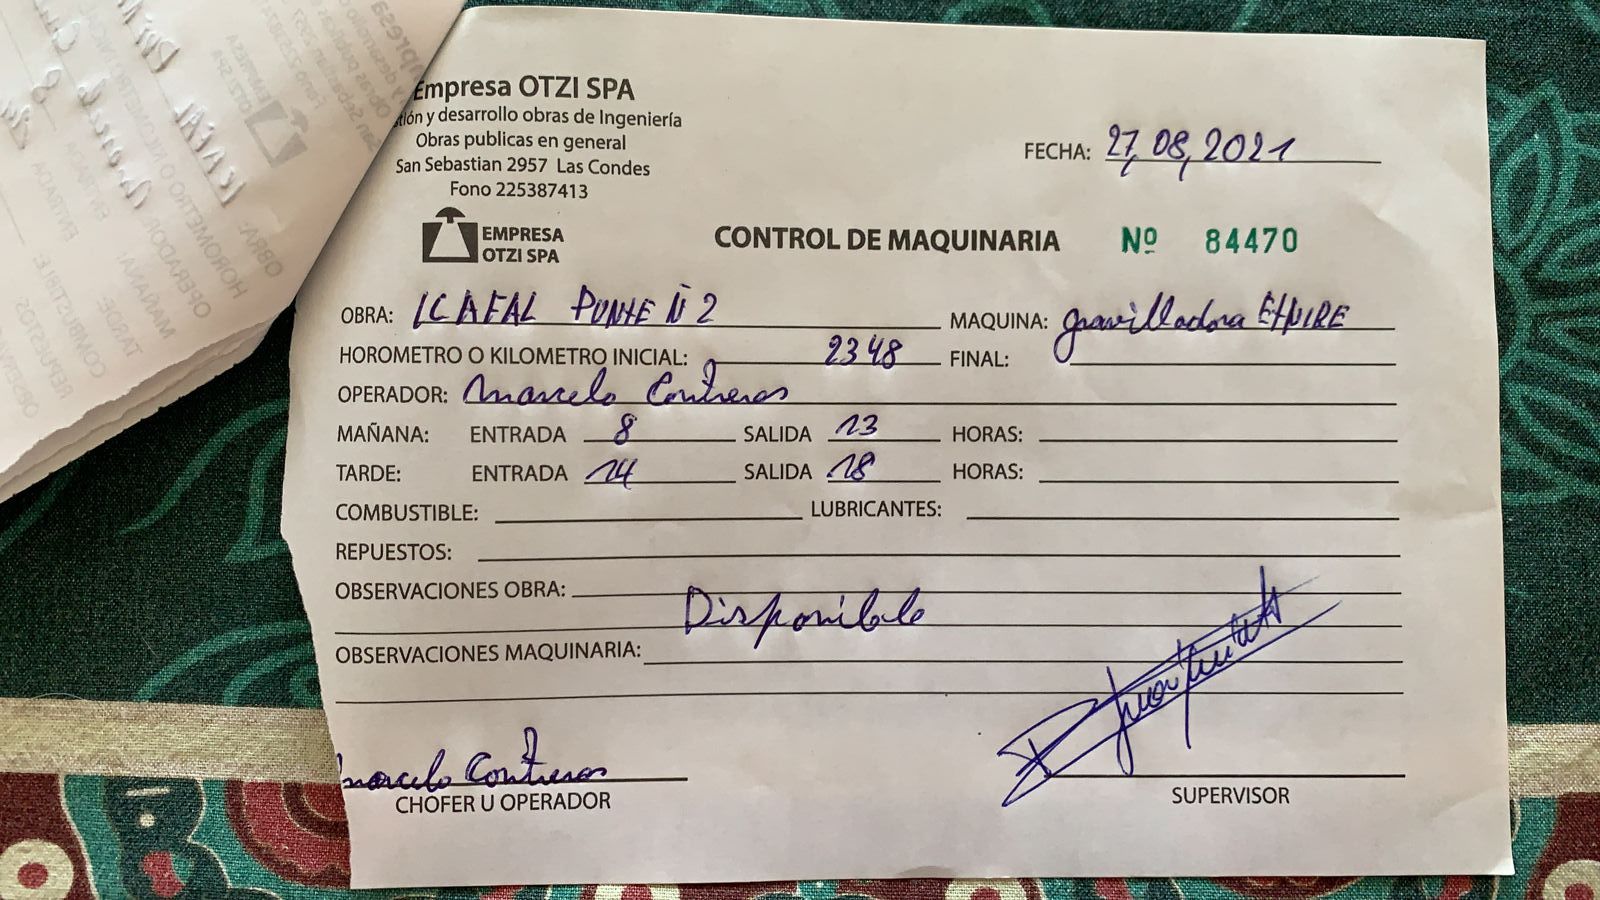 Empresa OTZI SPA
tión y desarrollo obras de Ingeniería
Obras publicas en general
San Sebastian 2957 Las Condes
Fono 225387413
FECHA: 27,08,2021
EMPRESA
OTZI SPA
CONTROL DE MAQUINARIA Nº 84470
OBRA: ICAFAL PONTE N 2 MAQUINA: gravilladora ETNIRE
HOROMETRO O KILOMETRO INICIAL: 2348 FINAL:
OPERADOR: Marcelo Contreras
MAÑANA: ENTRADA 8 SALIDA 13 HORAS:
TARDE: ENTRADA 14 SALIDA 18 HORAS:
COMBUSTIBLE: LUBRICANTES:
REPUESTOS:
OBSERVACIONES OBRA:
Disponible
OBSERVACIONES MAQUINARIA:
Marcelo Contreras
CHOFER U OPERADOR
SUPERVISOR